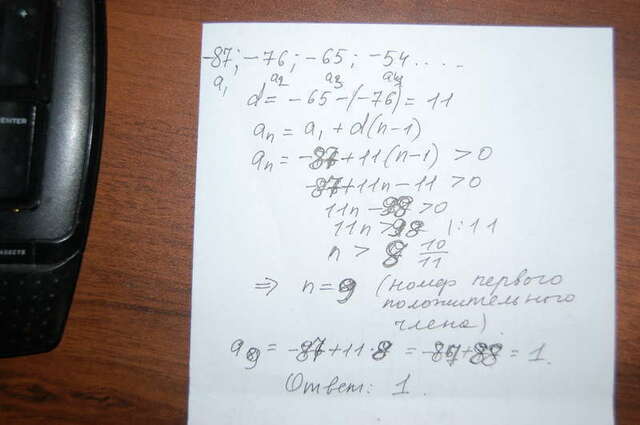 ENTER
-87; -76; -65; -54....
a₁ a₂ a₃ a₄
d = -65-(-76) = 11
aₙ = a₁ + d(n-1)
aₙ = -87+11(n-1) > 0
-87+11n-11 > 0
11n - 98 > 0
11n > 98 |:11
n > 8 10/11
⇒ n = 9 (номер первого
положительного
члена)
a₉ = -87+11·8 = -87+88 = 1.
Ответ: 1.